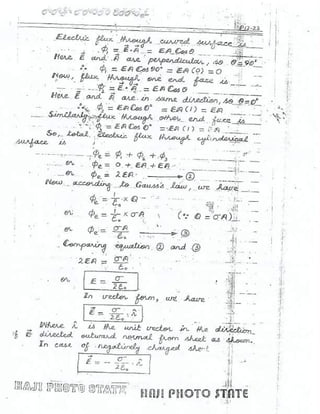 P12-23
Electric flux through curved surface is
Φ₁ = E⃗ · A⃗ = EA Cosθ
Here E⃗ and A⃗ are perpendicular, so θ=90°
∴ Φ₁ = EA Cos 90° = EA (0) = 0
Now, flux through one end face is
Φ₂ = E⃗ · A⃗ = EA Cosθ
Here E⃗ and A⃗ are in same direction, so θ=0°
∴ Φ₂ = EA Cos 0° = EA (1) = EA
Similarly flux through other end face is
Φ₃ = EA Cos 0° = EA (1) = EA
So, total electric flux through cylinderical
surface is
Φe = Φ₁ + Φ₂ + Φ₃
or Φe = 0 + EA + EA
or Φe = 2EA
Now according to Gauss's law, we have
Φe = 1/ε₀ × Q
or Φe = 1/ε₀ × σA (∵ Q = σA)
or Φe = σA/ε₀ ③
Comparing equation ② and ③
2EA = σA/ε₀
or, E = σ/2ε₀
In vector form, we have
E⃗ = σ/2ε₀ . r̂
Where r̂ is the unit vector in the direction
of E⃗ directed outward normal from sheet as shown.
In case of negatively charged sheet
E⃗ = - σ/2ε₀ . r̂
HAJI PHOTO STATE HAJI PHOTO STATE